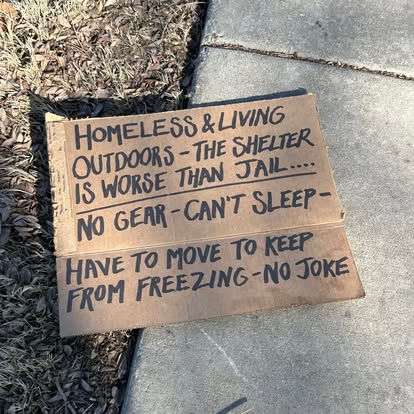 HOMELESS & LIVING
OUTDOORS - THE SHELTER
IS WORSE THAN JAIL....
NO GEAR - CAN'T SLEEP -
HAVE TO MOVE TO KEEP
FROM FREEZING - NO JOKE